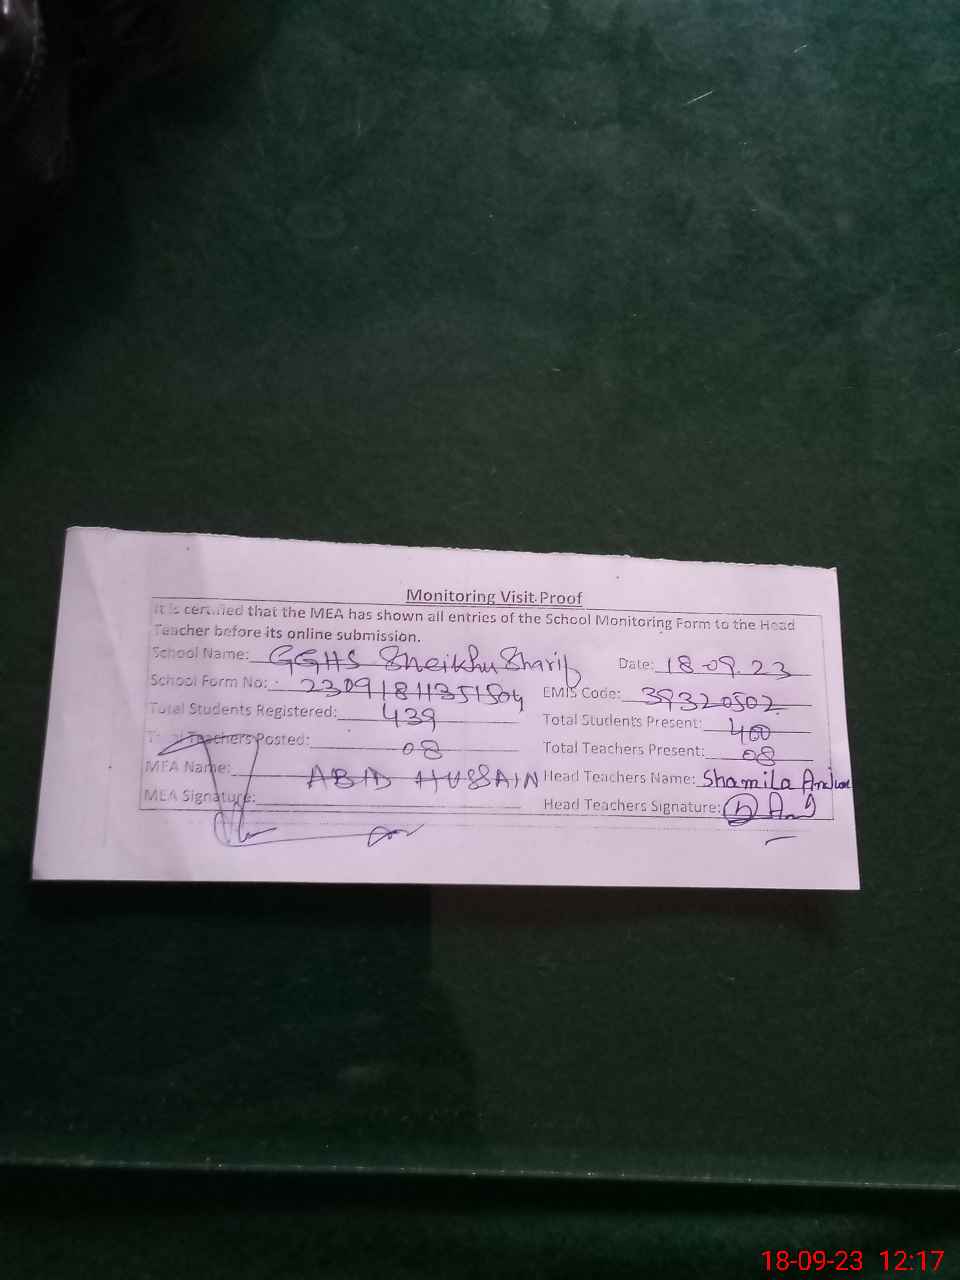 Monitoring Visit Proof
It is certified that the MEA has shown all entries of the School Monitoring Form to the Head
Teacher before its online submission.
School Name: GGHS Sheikhu Sharif Date: 18-09-23
School Form No: 23091811351504 EMIS Code: 39320502
Total Students Registered: 439 Total Students Present: 400
Total Teachers Posted: 08 Total Teachers Present: 08
MEA Name: ABID HUSSAIN Head Teachers Name: Shamila Anjum
MEA Signature: Head Teachers Signature:
18-09-23 12:17